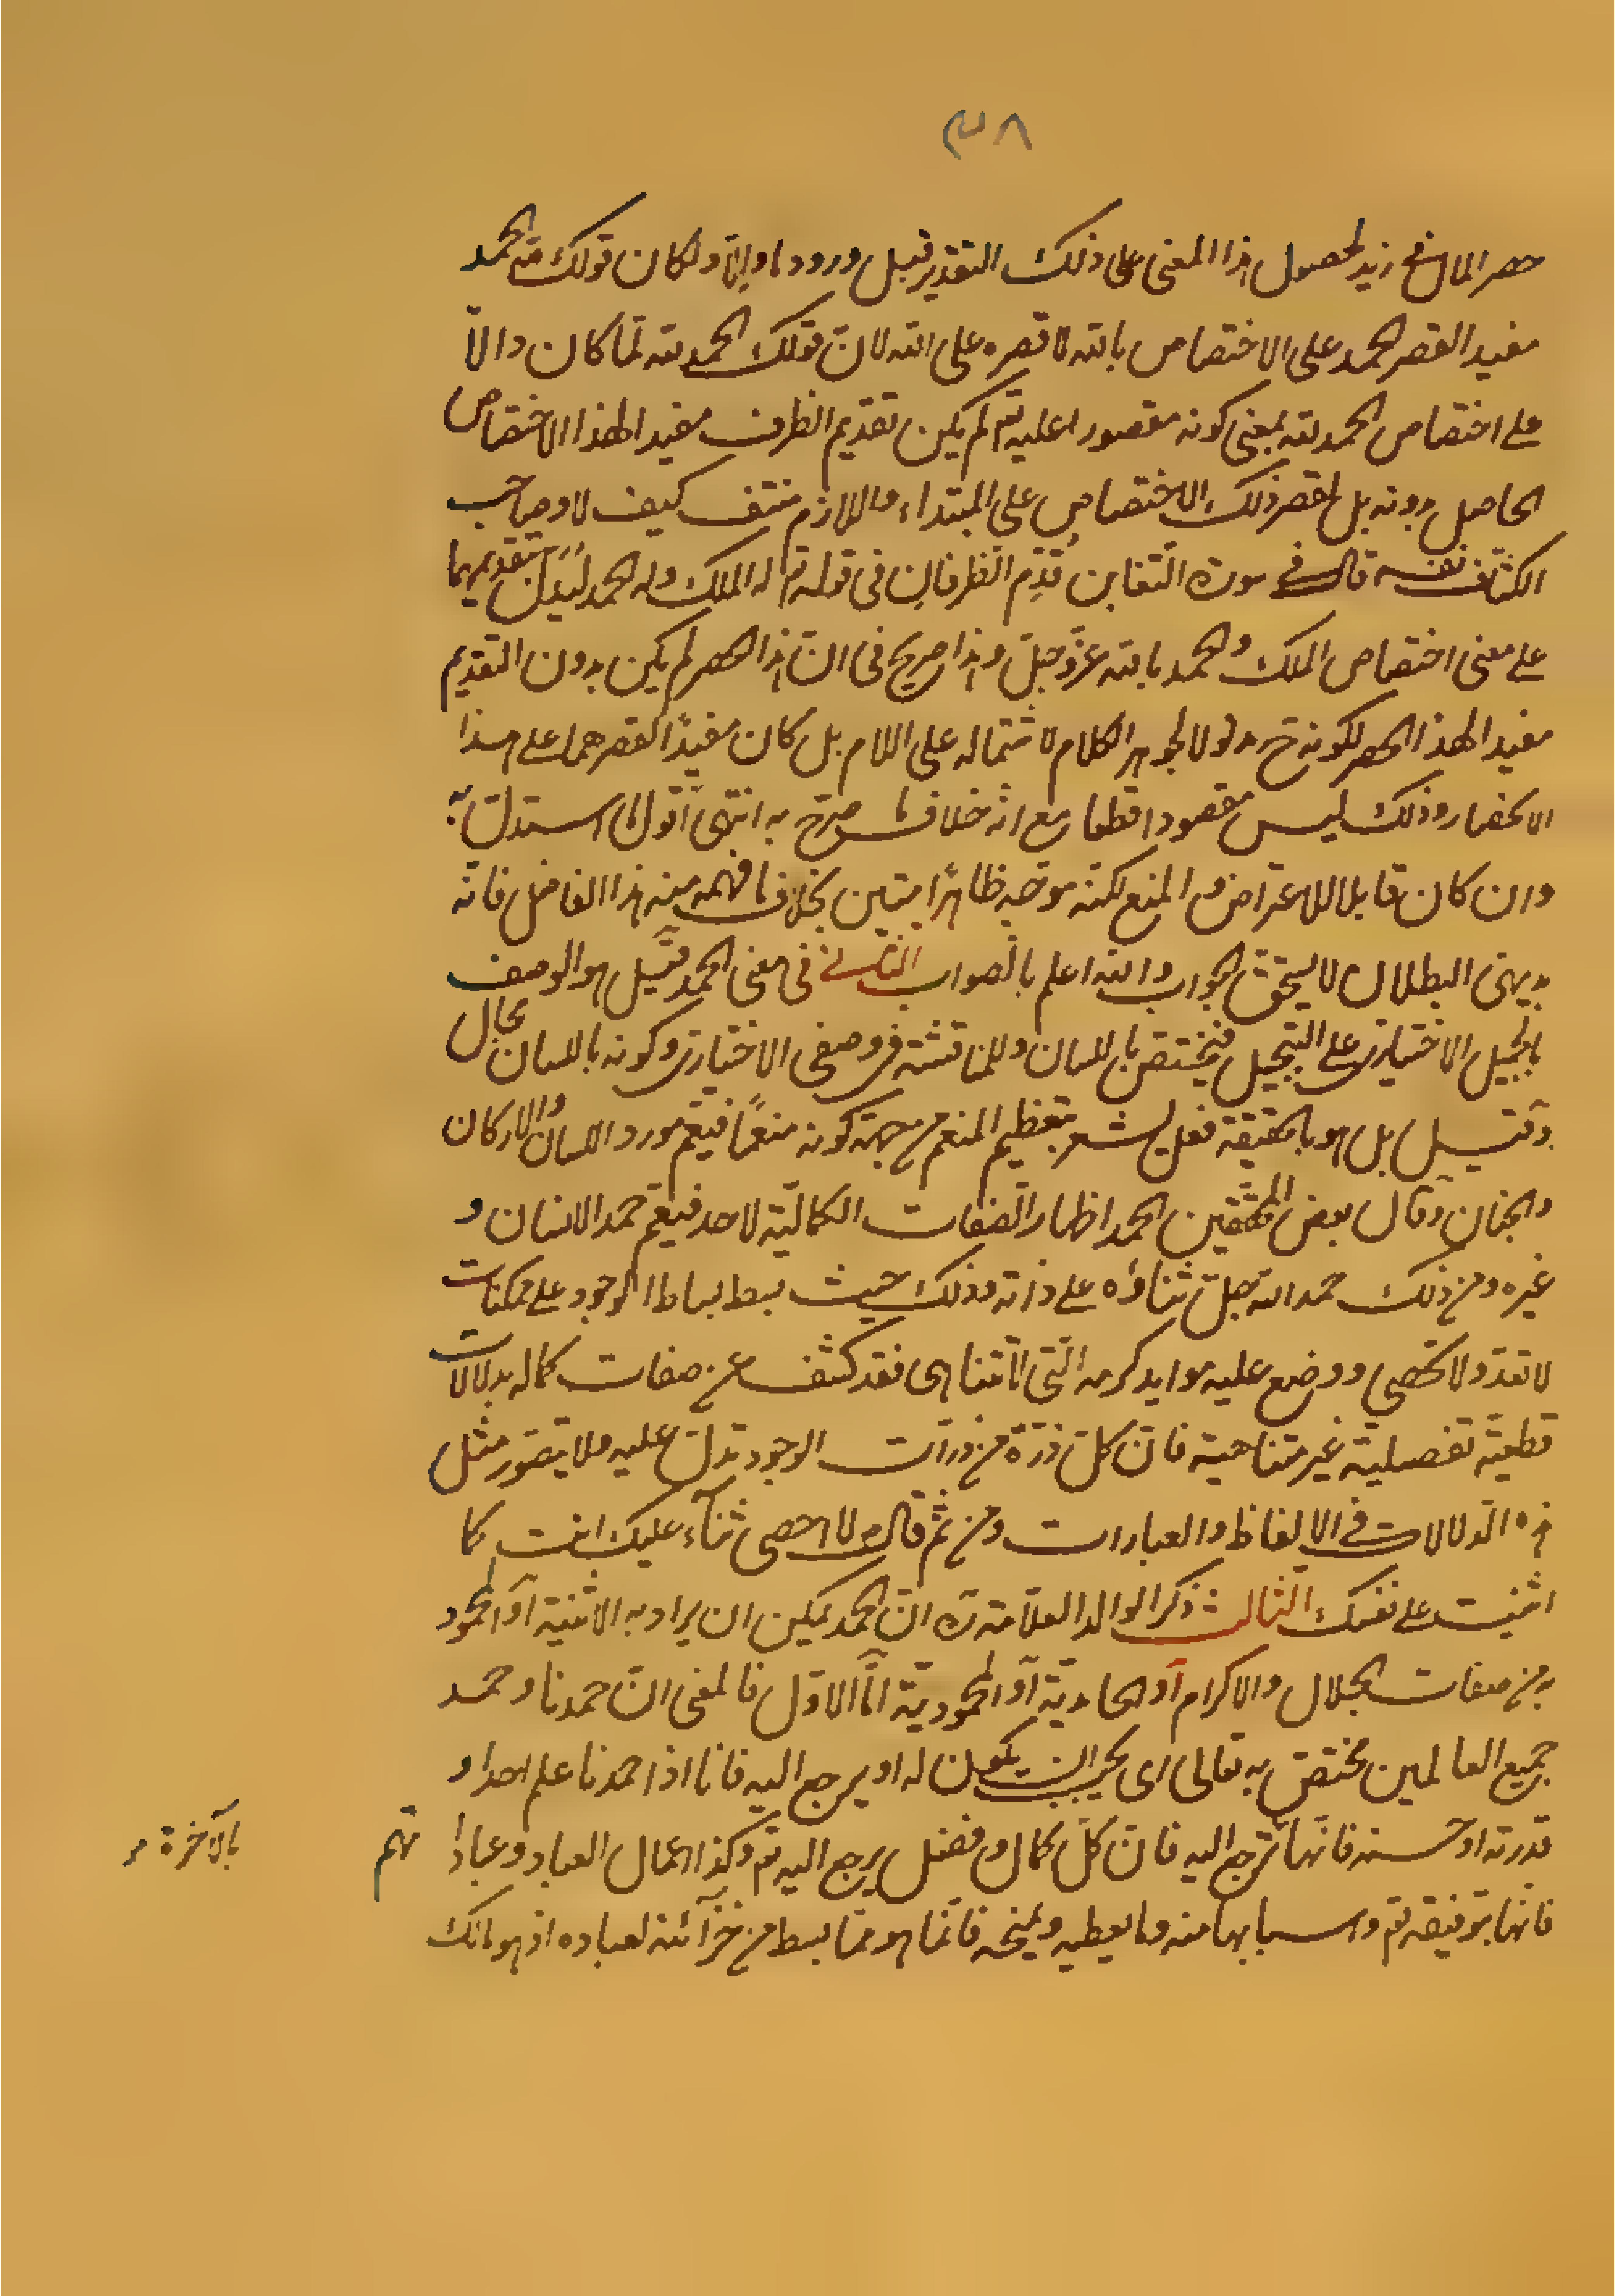 ٣٨
حصر المال في زيد لحصول هذا المعنى على ذلك التقدير قبل ورود ما والّا ولكان قولك لله الحمد
مفيد القصر الحمد على الاختصاص بالله لا قصره على الله لانّ قولك الحمد لله لمّا كان دالّا
على اختصاص الحمد لله بمعنى كونه مقصورا عليه تم لم يكن تقديم الظرف مفيدا لهذا الاختصاص
الحاصل دونه بل لقصر ذلك الاختصاص على المبتداء واللازم منتف كيف لا وصاحب
الكشاف نفسه قال في سورة التغابن قُدّم الظرفان في قوله تم له الملك وله الحمد ليدلّ بتقديمهما
على معنى اختصاص الملك والحمد بالله عزّ وجلّ وهذا صريح في انّ هذا الحصر لم يكن بدون التقديم
مفيدا لهذا الحصر لكونه ح مدلولا لجوهر الكلام لاشتماله على اللام بل كان مفيدًا لقصرهما على هذا
الانحصار وذلك ليس مقصودا قطعا مع انّه خلاف ما صرّح به انتهى اقول ما استدلّ به
وان كان قابلا للاعتراض و المنع لكنّه موجّه ظاهرًا متين بخلاف ما فهمه منه هذا الفاضل فانّه
بديهىّ البطلان لا يستحق الجواب والله اعلم بالصواب الثاني في معنى الحمد قيل هو الوصف
بالجميل الاختيارى على التبجيل فيختصّ باللسان وللمناقشة في وصفى الاختيارى وكونه باللسان مجال
وقيل بل هو بالحقيقة فعل يشعر بتعظيم المنعم من جهة كونه منعمًا فيعم مورد اللسان والاركان
والجنان وقال بعض المحققين الحمد اظهار الصفات الكماليّة لاحد فيعم حمد الانسان و
غيره ومن ذلك حمد الله جلّ ثناؤه على ذاته وذلك حيث بسط بساط الوجود على ممكنات
لا تعدّ ولا تحصى ووضع عليه موايد كرمه الّتى لا تتناهى فقد كشف عن صفات كماله بدلالات
قطعيّة تفصيليّة غير متناهية فانّ كلّ ذرّة من ذرات الوجود تدلّ عليه ولا يتصوّر مثل
هذه الدلالات في الالفاظ والعبارات ومن ثم قال م لا احصى ثناء عليك انت كما
اثنيت على نفسك الثالث ذكر الوالد العلّامة ره انّ الحمد يمكن ان يراد به الاثنية او المحمود
به من صفات الجلال والاكرام او الحامديّة او المحموديّة امّا الاوّل فالمعنى انّ حمدنا وحمد
جميع العالمين مختصّ به تعالى اى يجب ان يكون له او يرجع اليه فانا اذا حمدنا علم احد او
قدرته او حسنه فانّها ترجع اليه فانّ كلّ كمال وفضل يرجع اليه تم وكذا اعمال العباد وعبادا تهم
بالآخرة
فانها بتوفيقه تم واسبابها منه وما يعطيه ويمنحه فانّما هو ممّا بسط من خزآئنه لعباده اذ هو مالك